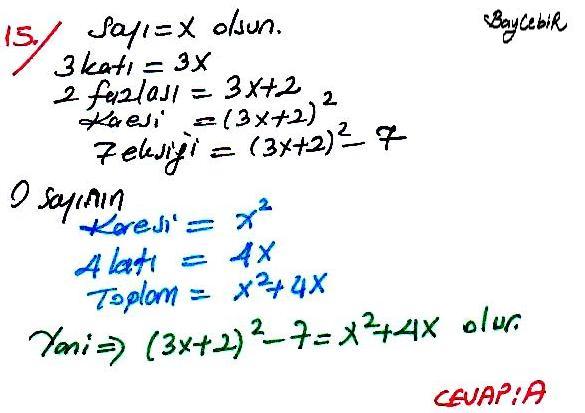 BayCebiR
15. Sayı = x olsun.
3 katı = 3x
2 fazlası = 3x+2
Karesi = (3x+2)²
7 eksiği = (3x+2)² - 7
O sayının
Karesi = x²
4 katı = 4x
Toplam = x²+4x
Yani ⇒ (3x+2)² - 7 = x²+4x olur.
CEVAP: A